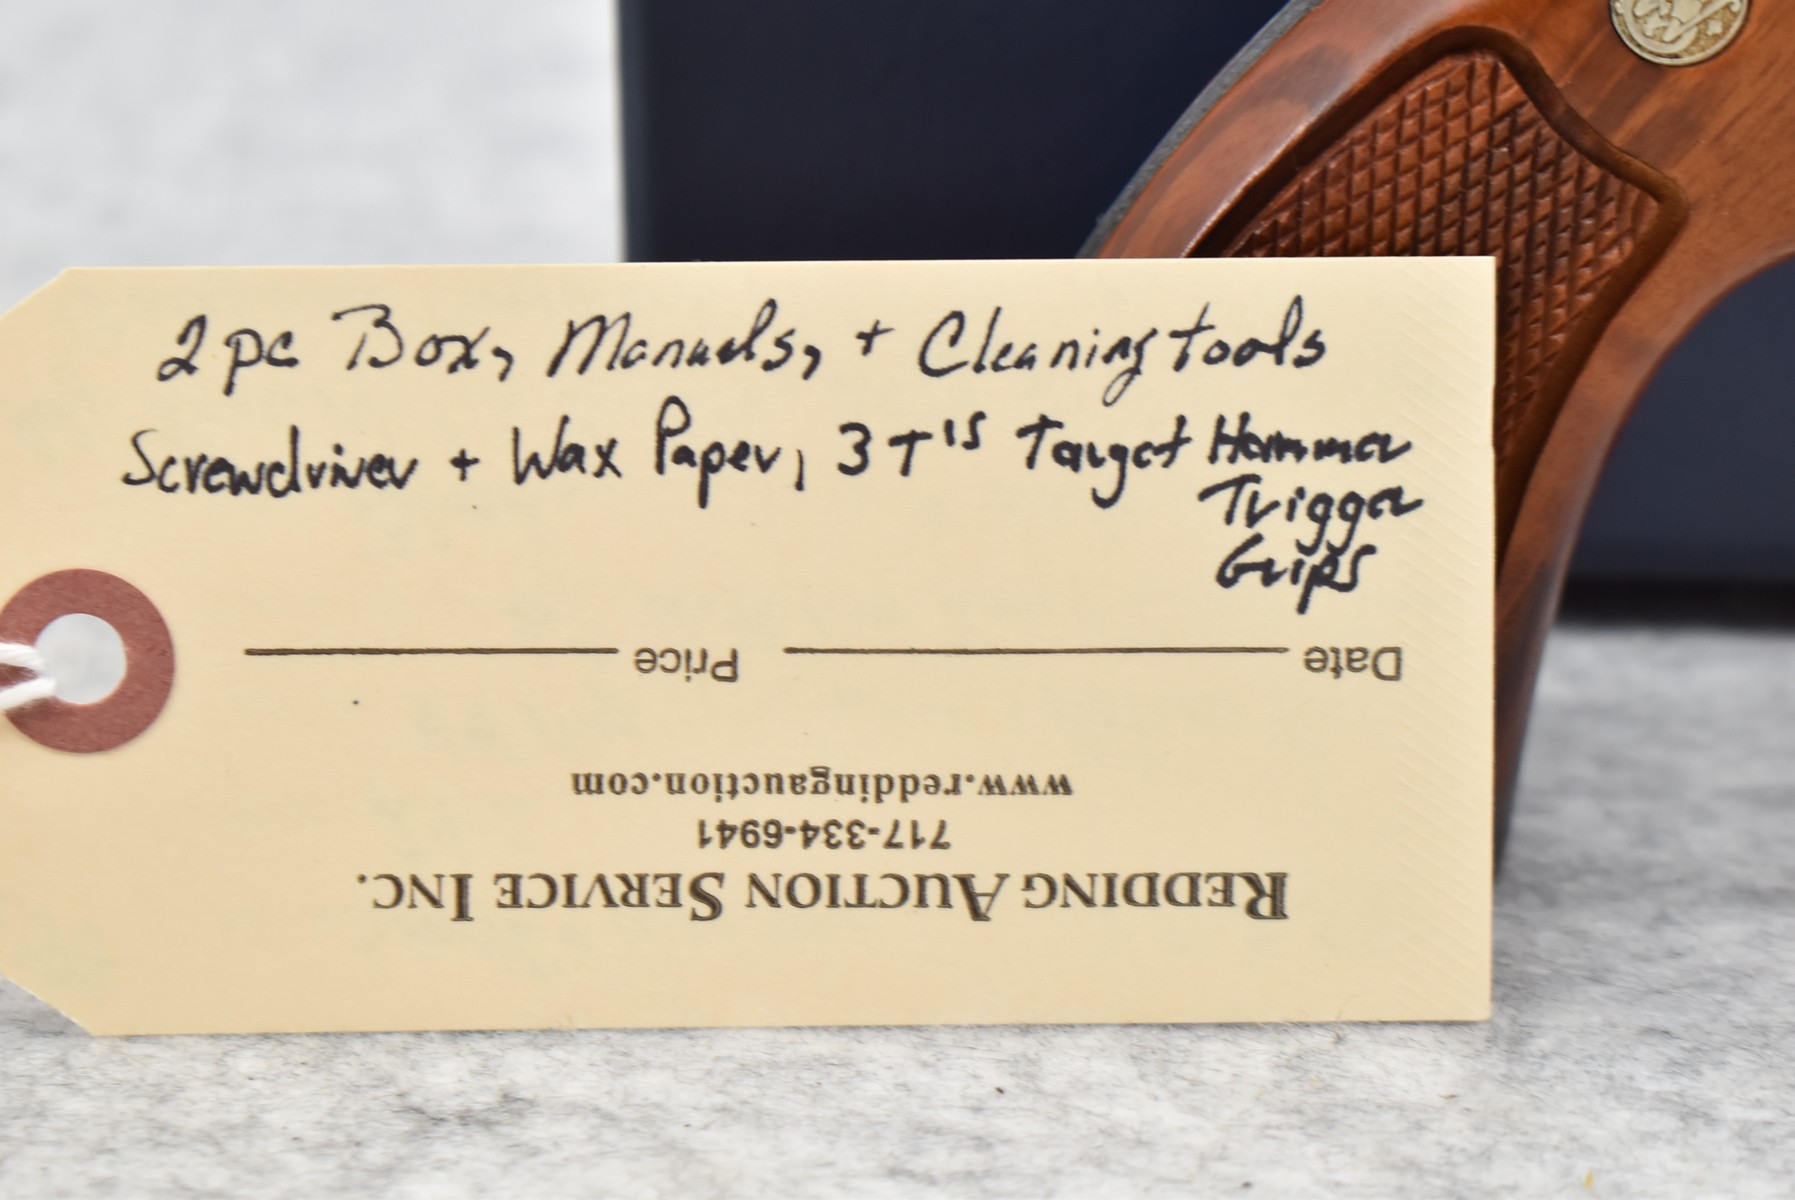 2 pc Box, Manuals, + Cleaning tools
Screwdriver + Wax Paper, 3 T's Target Hammer
Trigger
Grips
Date Price
www.reddingauction.com
717-334-6941
REDDING AUCTION SERVICE INC.